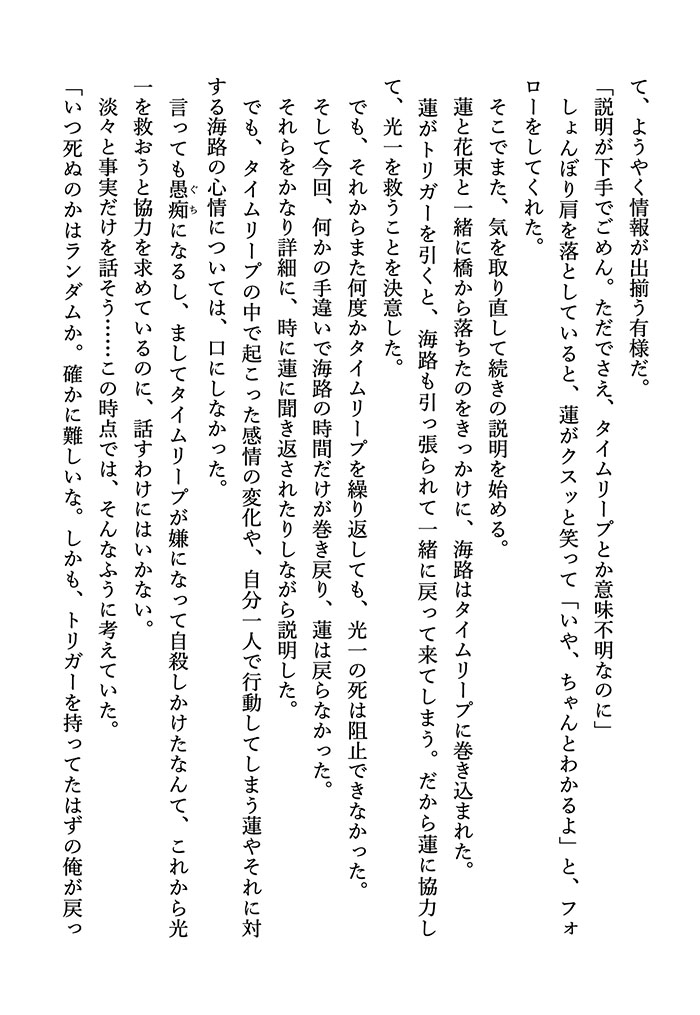 て、ようやく情報が出揃う有様だ。
「説明が下手でごめん。ただでさえ、タイムリープとか意味不明なのに」
　しょんぼり肩を落としていると、蓮がクスッと笑って「いや、ちゃんとわかるよ」と、フォ
ローをしてくれた。
　そこでまた、気を取り直して続きの説明を始める。
　蓮と花束と一緒に橋から落ちたのをきっかけに、海路はタイムリープに巻き込まれた。
　蓮がトリガーを引くと、海路も引っ張られて一緒に戻って来てしまう。だから蓮に協力し
て、光一を救うことを決意した。
　でも、それからまた何度かタイムリープを繰り返しても、光一の死は阻止できなかった。
　そして今回、何かの手違いで海路の時間だけが巻き戻り、蓮は戻らなかった。
　それらをかなり詳細に、時に蓮に聞き返されたりしながら説明した。
　でも、タイムリープの中で起こった感情の変化や、自分一人で行動してしまう蓮やそれに対
する海路の心情については、口にしなかった。
　言っても愚痴ぐちになるし、ましてタイムリープが嫌になって自殺しかけたなんて、これから光
一を救おうと協力を求めているのに、話すわけにはいかない。
　淡々と事実だけを話そう……この時点では、そんなふうに考えていた。
「いつ死ぬのかはランダムか。確かに難しいな。しかも、トリガーを持ってたはずの俺が戻っ